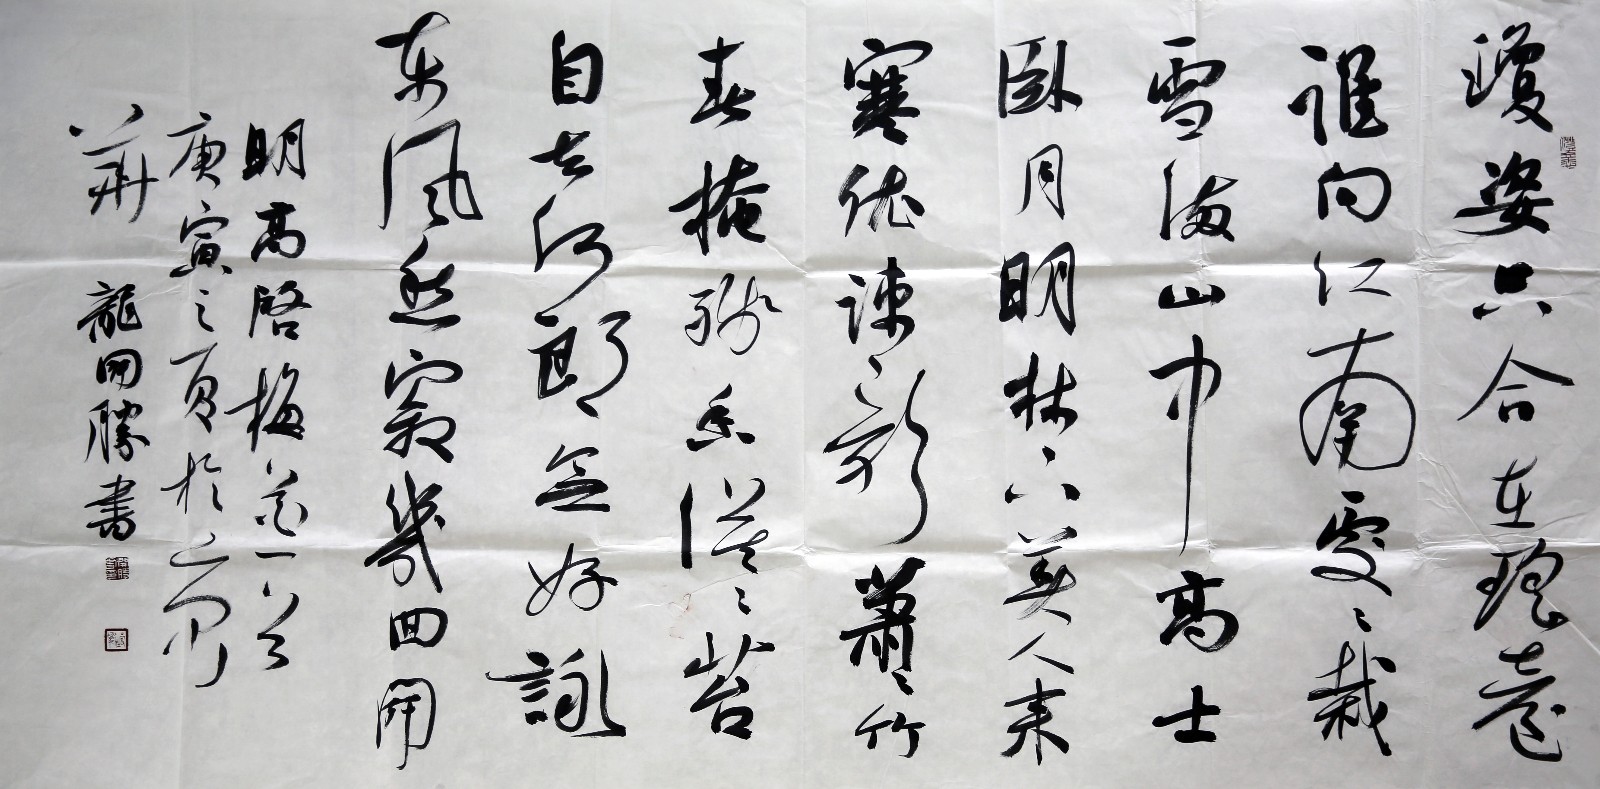 瓊姿只合在瑶臺
誰向江南處〻栽
雪满山中高士
卧月明林下美人来
寒依疎影蕭〻竹
春掩残香漠〻苔
自去何郎無好詠
东風愁寂幾回開
明高啓梅花一首
庚寅之夏於京
華 龍開勝書